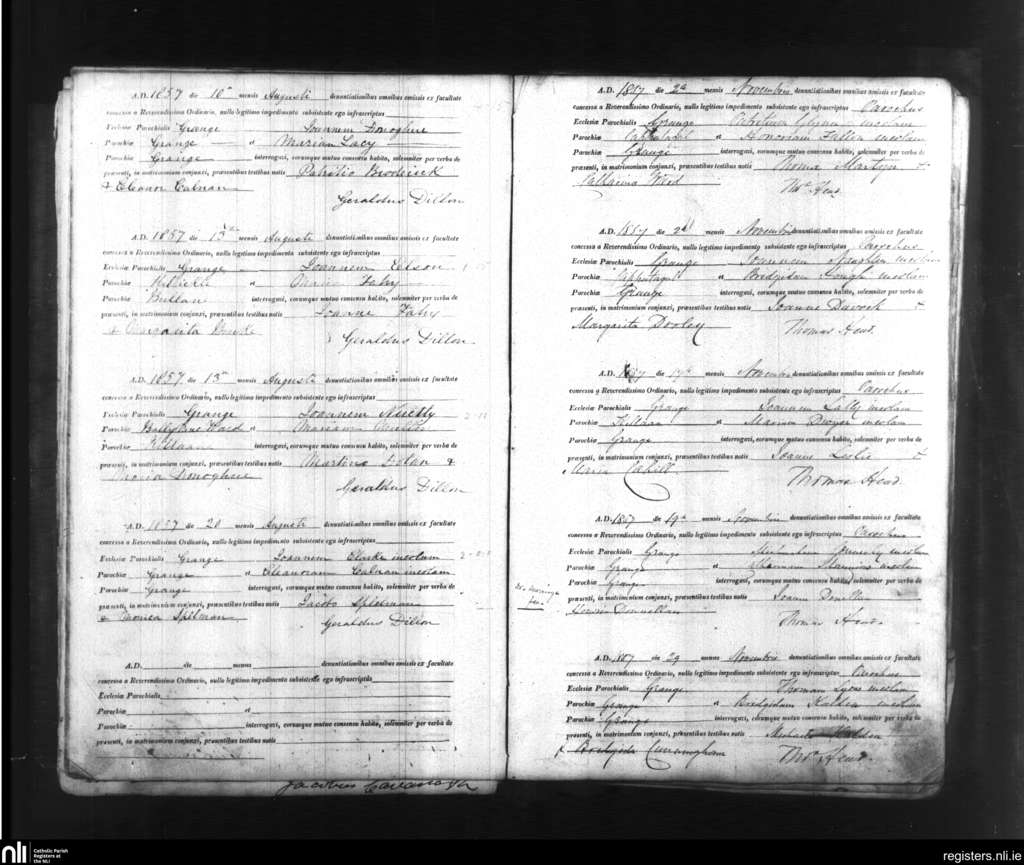 A.D. 1857 die 10ª mensis Augusti denuntiationibus omnibus omissis ex facultate
concessa a Reverendissimo Ordinario, nullo legitimo impedimento subsistente ego infrascriptus
Ecclesiæ Parochialis Grange Joannem Donoghue
Parochiæ Grange et Mariam Lacy
Parochiæ Grange interrogavi, eorumque mutuo consensu habito, solemniter per verba de
præsenti, in matrimonium conjunxi, præsentibus testibus notis Patritio Broderick
+ Eleonor Calnan
Geraldus Dillon
A.D. 1857 die 13 mensis Augusti denuntiationibus omnibus omissis ex facultate
concessa a Reverendissimo Ordinario, nullo legitimo impedimento subsistente ego infrascriptus
Ecclesiæ Parochialis Grange Joannem
Parochiæ et Maria Fahy
Parochiæ Bullan interrogavi, eorumque mutuo consensu habito, solemniter per verba de
præsenti, in matrimonium conjunxi, præsentibus testibus notis Joanne Fahy
+ Margarita
Geraldus Dillon
A.D. 1857 die 13 mensis Augusti denuntiationibus omnibus omissis ex facultate
concessa a Reverendissimo Ordinario, nullo legitimo impedimento subsistente ego infrascriptus
Ecclesiæ Parochialis Grange Joannem
Parochiæ et Mariamm
Parochiæ interrogavi, eorumque mutuo consensu habito, solemniter per verba de
præsenti, in matrimonium conjunxi, præsentibus testibus notis Martino Dolan +
Maria Donoghue
Geraldus Dillon
A.D. 1857 die 20 mensis Augusti denuntiationibus omnibus omissis ex facultate
concessa a Reverendissimo Ordinario, nullo legitimo impedimento subsistente ego infrascriptus
Ecclesiæ Parochialis Grange Joannem Clarke incolam
Parochiæ Grange et Eleanoram Calnan incolam
Parochiæ Grange interrogavi, eorumque mutuo consensu habito, solemniter per verba de
præsenti, in matrimonium conjunxi, præsentibus testibus notis Jacobo Spelman
+ Monica Spelman
Geraldus Dillon
A.D. die mensis denuntiationibus omnibus omissis ex facultate
concessa a Reverendissimo Ordinario, nullo legitimo impedimento subsistente ego infrascriptus
Ecclesiæ Parochialis
Parochiæ et
Parochiæ interrogavi, eorumque mutuo consensu habito, solemniter per verba de
præsenti, in matrimonium conjunxi, præsentibus testibus notis
Jacobus Cavanagh
A.D. 1857 die 2ª mensis Novembris denuntiationibus omnibus omissis ex facultate
concessa a Reverendissimo Ordinario, nullo legitimo impedimento subsistente ego infrascriptus Parochus
Ecclesiæ Parochialis Grange incolam
Parochiæ et Honoriam Fallon incolam
Parochiæ Grange interrogavi, eorumque mutuo consensu habito, solemniter per verba de
præsenti, in matrimonium conjunxi, præsentibus testibus notis Thoma Martyn +
Catharina Wood
Thos Head
A.D. 1857 die 2ª mensis Novembris denuntiationibus omnibus omissis ex facultate
concessa a Reverendissimo Ordinario, nullo legitimo impedimento subsistente ego infrascriptus Parochus
Ecclesiæ Parochialis Grange Joannem incolam
Parochiæ et Bridgidam incolam
Parochiæ Grange interrogavi, eorumque mutuo consensu habito, solemniter per verba de
præsenti, in matrimonium conjunxi, præsentibus testibus notis Joanne +
Margarita Dooley
Thomas Head.
A.D. 1857 die 17ª mensis Novembris denuntiationibus omnibus omissis ex facultate
concessa a Reverendissimo Ordinario, nullo legitimo impedimento subsistente ego infrascriptus Parochus
Ecclesiæ Parochialis Grange Joannem Lally incolam
Parochiæ et Mariam Dwyer incolam
Parochiæ Grange interrogavi, eorumque mutuo consensu habito, solemniter per verba de
præsenti, in matrimonium conjunxi, præsentibus testibus notis Joanne Leslie +
Maria Cahill
Thomas Head.
A.D. 1857 die 19ª mensis Novembris denuntiationibus omnibus omissis ex facultate
concessa a Reverendissimo Ordinario, nullo legitimo impedimento subsistente ego infrascriptus Parochus
Ecclesiæ Parochialis Grange incolam
Parochiæ Grange et incolam
Parochiæ Grange interrogavi, eorumque mutuo consensu habito, solemniter per verba de
præsenti, in matrimonium conjunxi, præsentibus testibus notis Joanne Donellan
Honoria Donnellan
Thomas Head.
A.D. 1857 die 29 mensis Novembris denuntiationibus omnibus omissis ex facultate
concessa a Reverendissimo Ordinario, nullo legitimo impedimento subsistente ego infrascriptus Parochus
Ecclesiæ Parochialis Grange Thomam Lyons incolam
Parochiæ Grange et Bridgidam incolam
Parochiæ Grange interrogavi, eorumque mutuo consensu habito, solemniter per verba de
præsenti, in matrimonium conjunxi, præsentibus testibus notis Michaele
+ Bridgida Cunningham
Thos Head.
nli Catholic Parish
Registers at
the NLI
registers.nli.ie